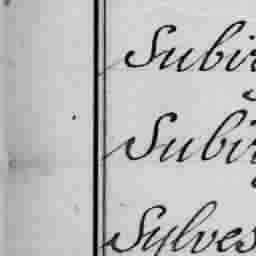 Subir
Subir
Sylves